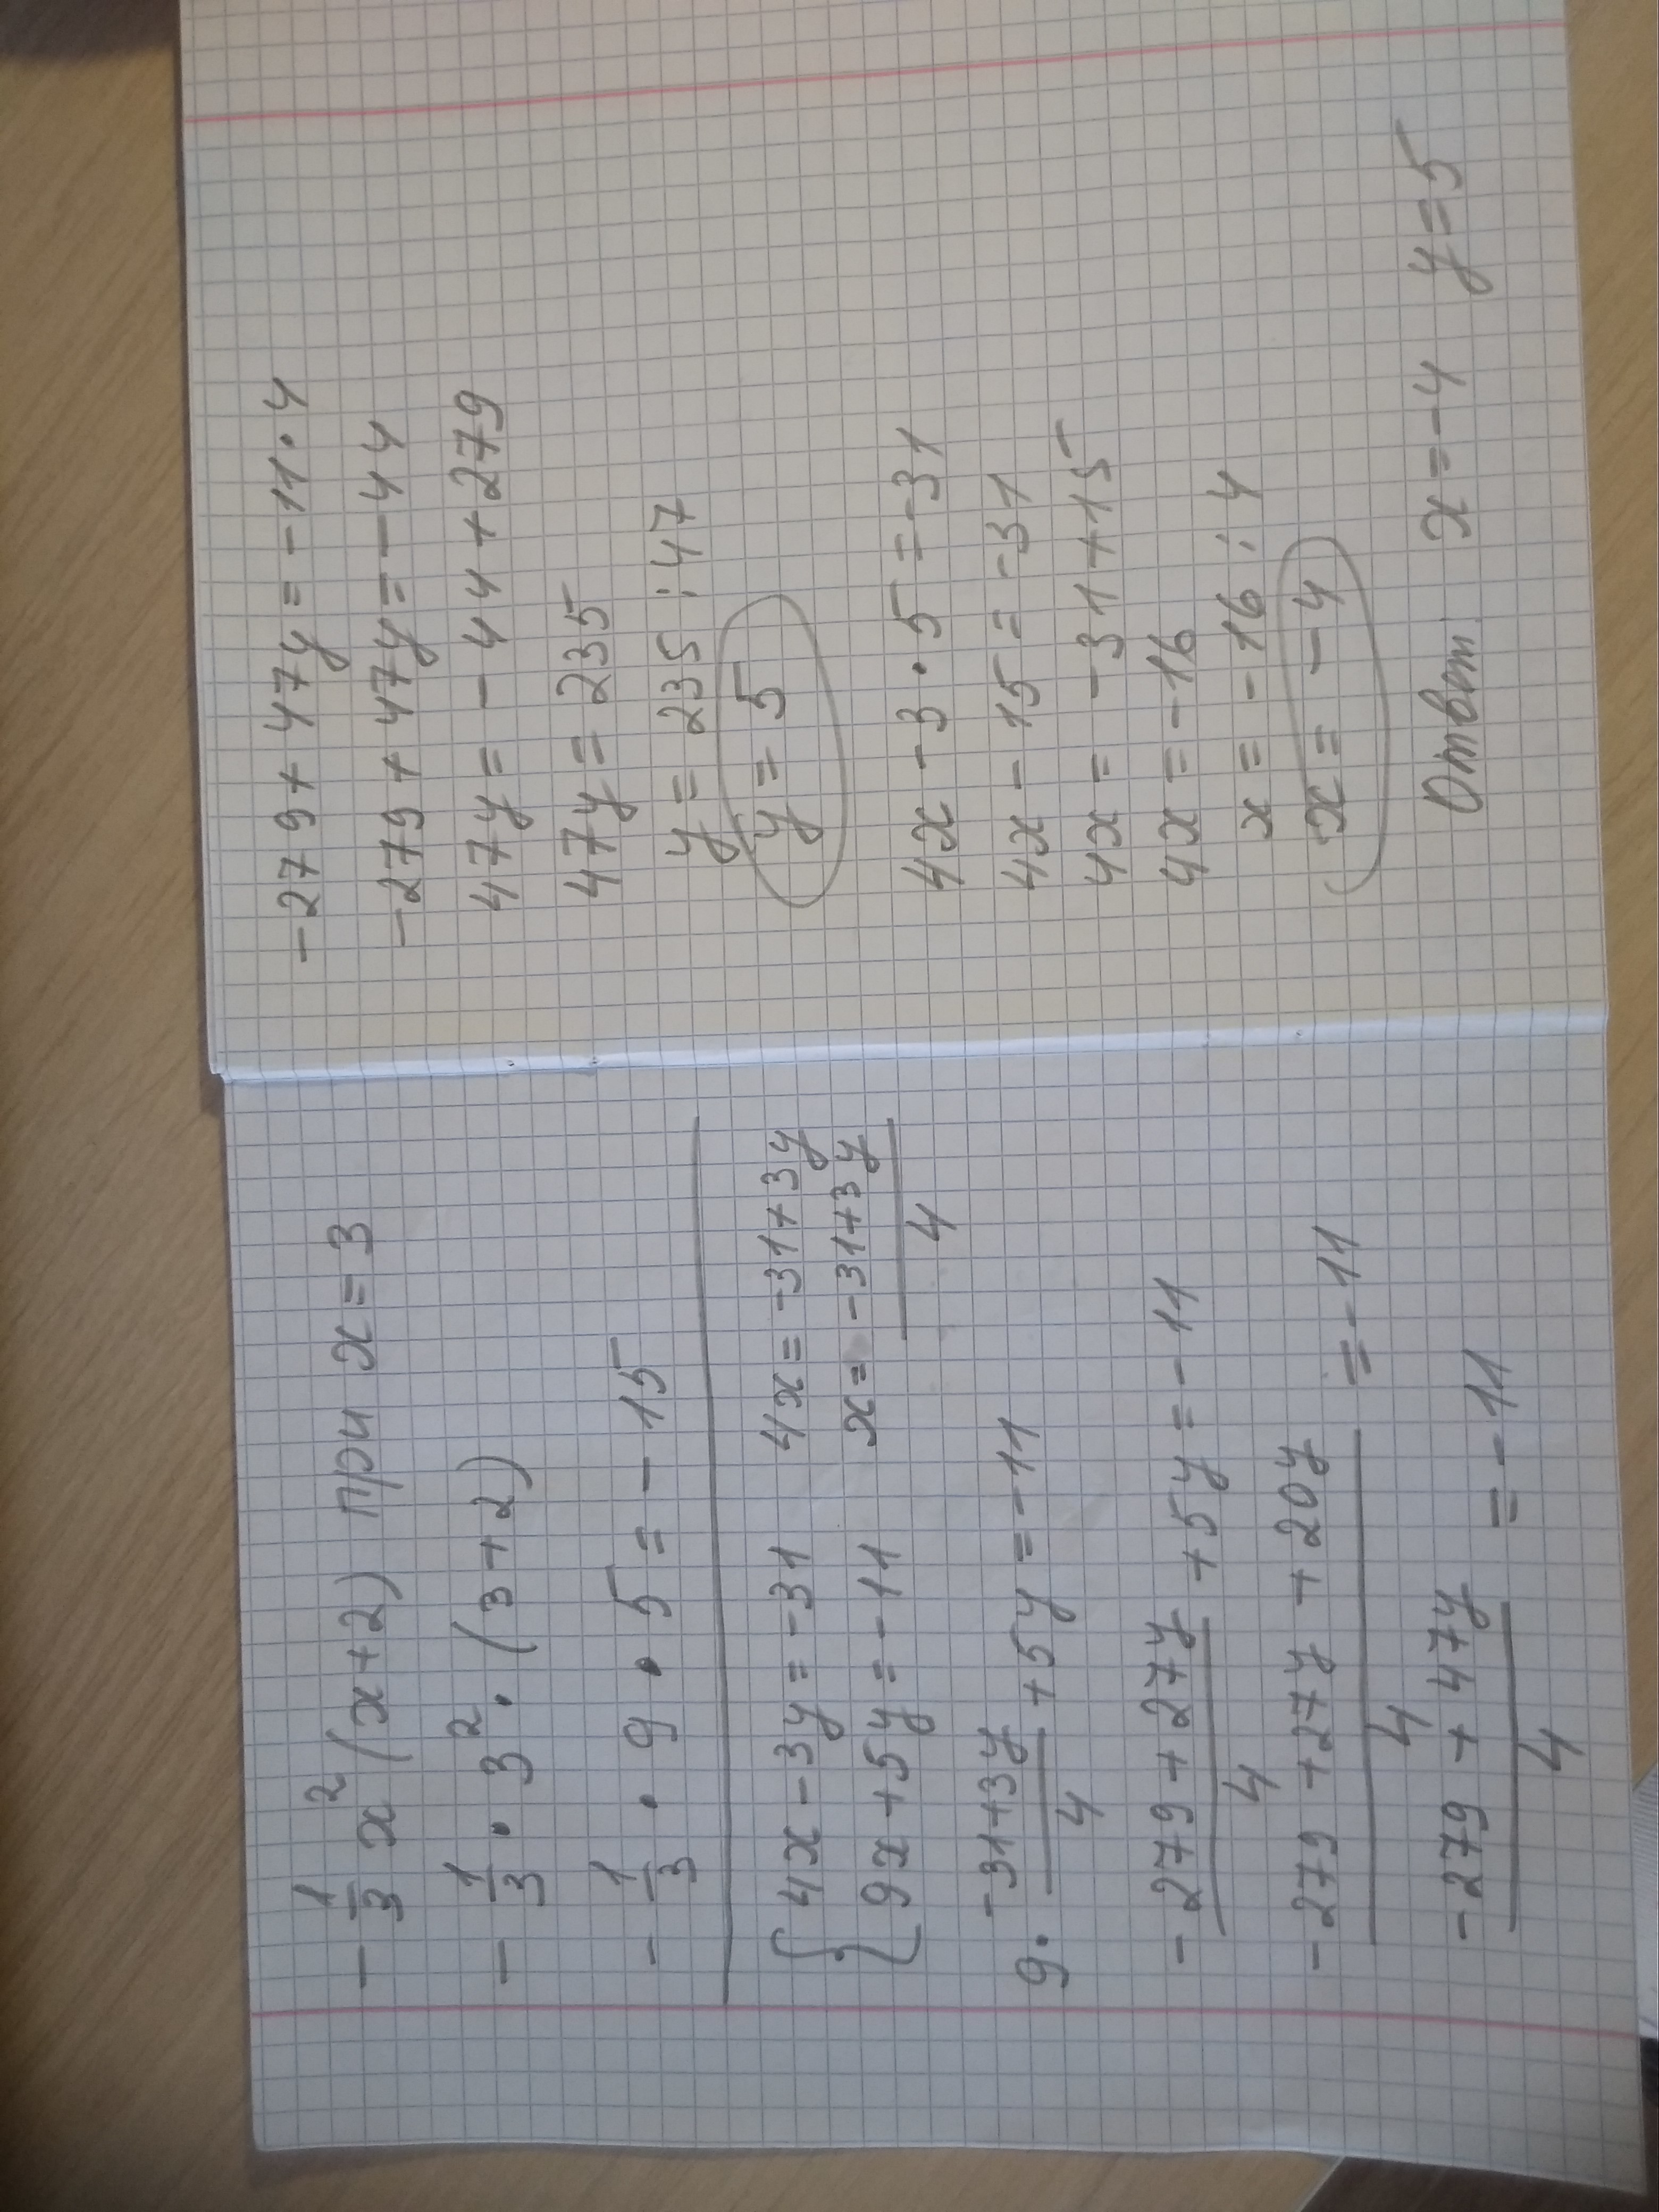 - 1/3 x² (x+2) при x = 3
- 1/3 · 3² · (3+2)
- 1/3 · 9 · 5 = - 15
{ 4x - 3y = -31 4x = -31+3y
9x + 5y = -11 x = (-31+3y)/4
9 · (-31+3y)/4 + 5y = -11
(-279 + 27y)/4 + 5y = -11
(-279 + 27y + 20y)/4 = -11
(-279 + 47y)/4 = -11
-279 + 47y = -11 · 4
-279 + 47y = -44
47y = -44 + 279
47y = 235
y = 235 : 47
y = 5
4x - 3 · 5 = -31
4x - 15 = -31
4x = -31 + 15
4x = -16
x = -16 : 4
x = -4
Ответ: x = -4 y = 5